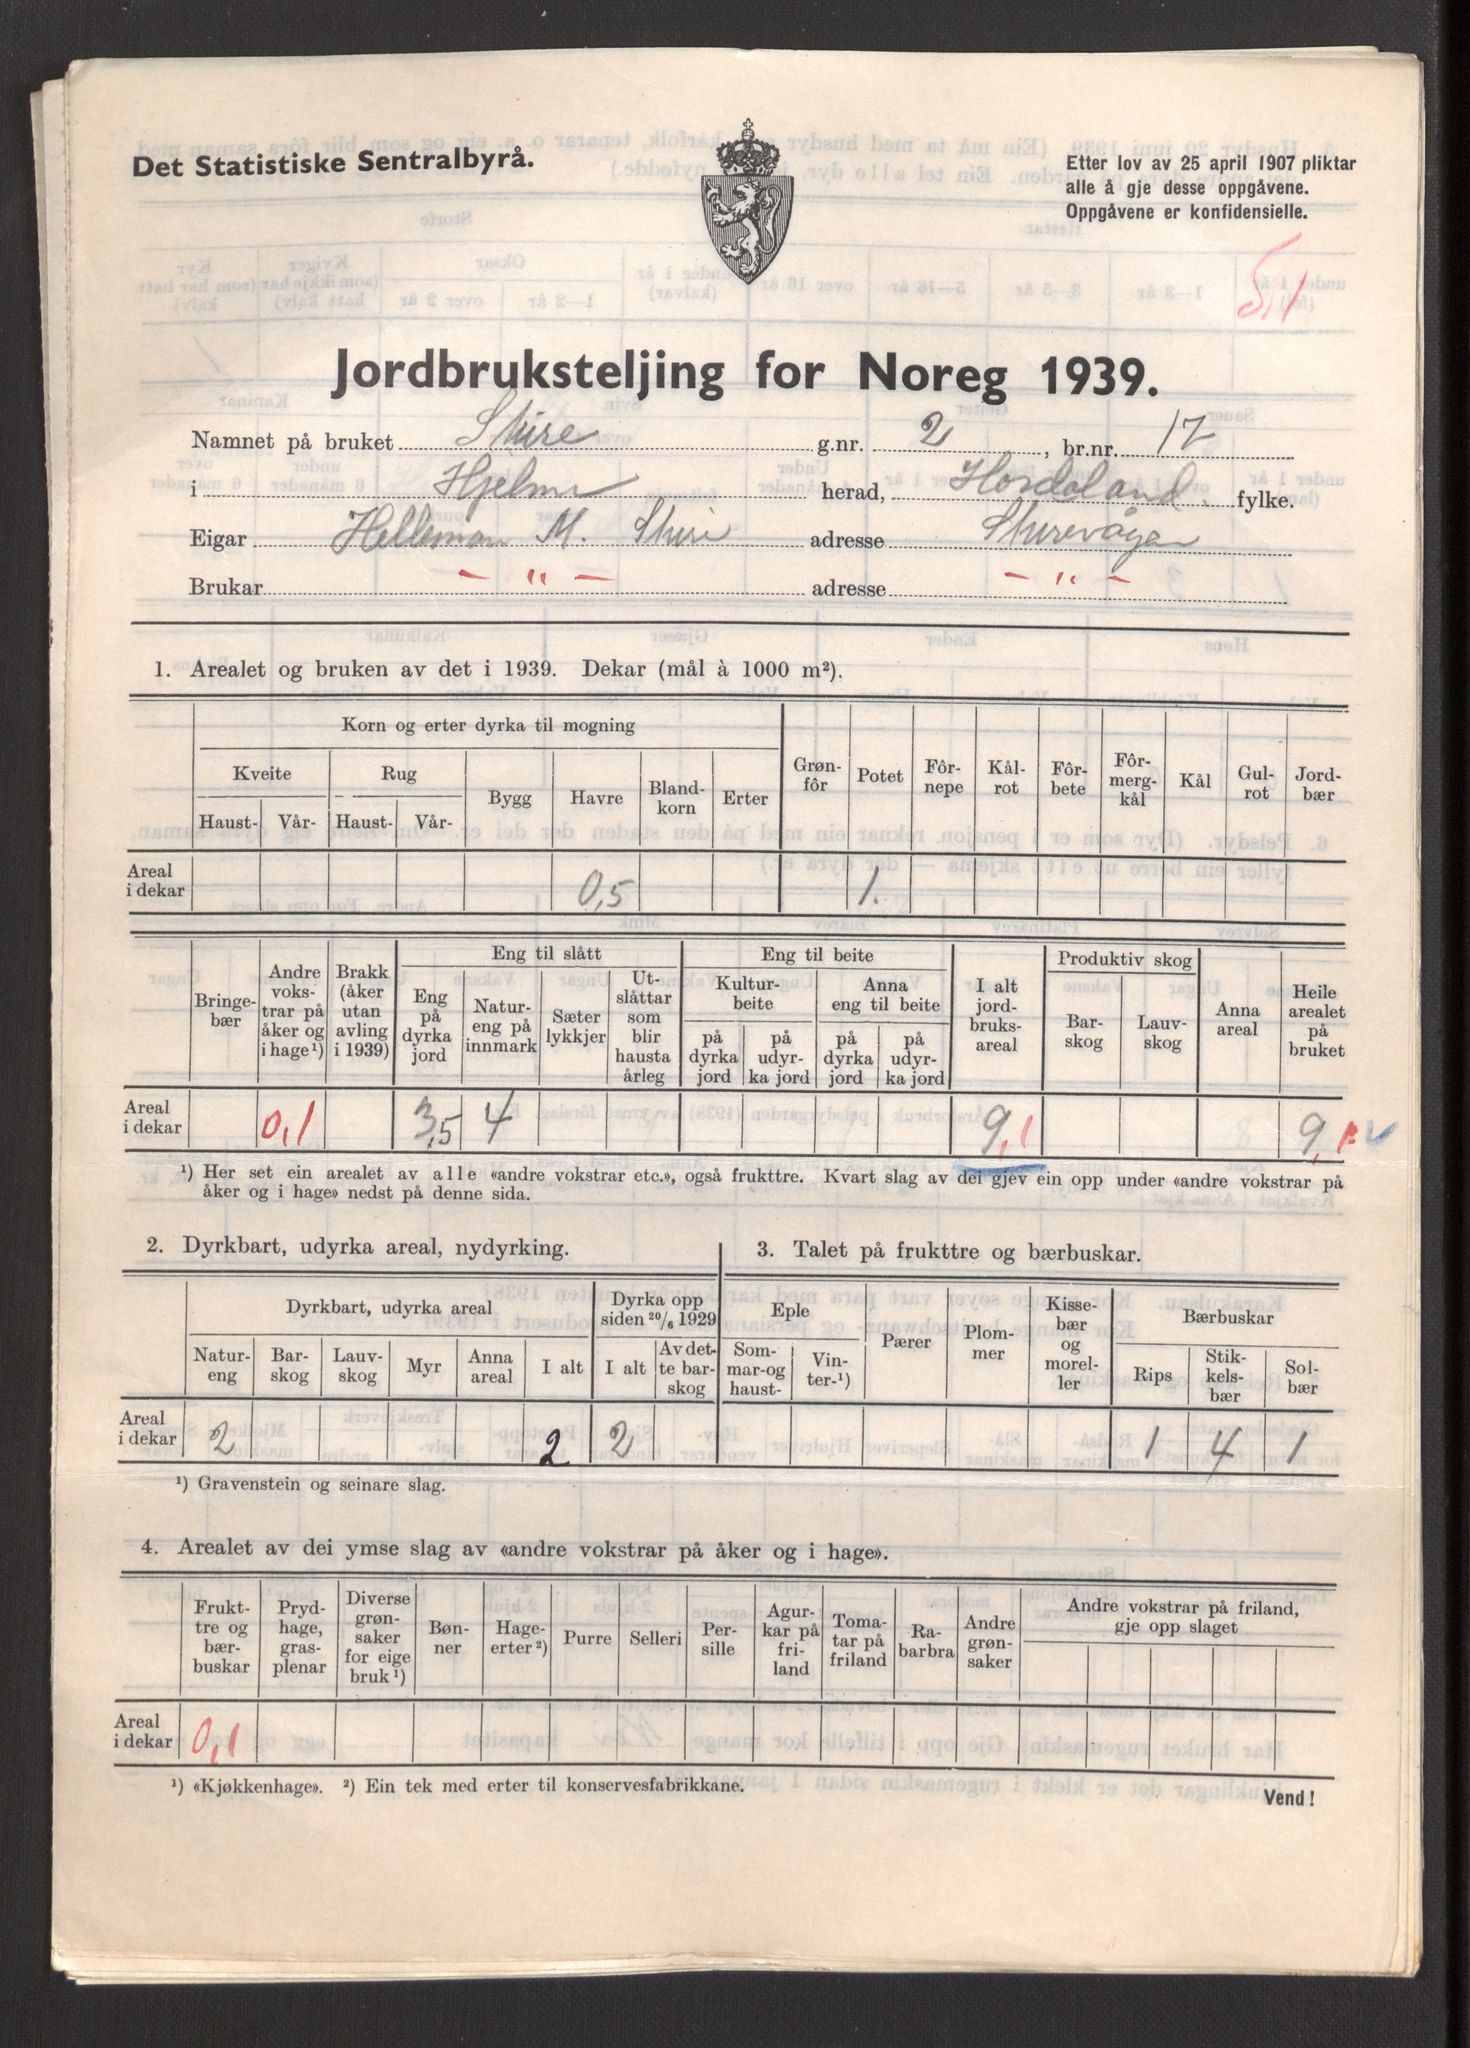 Det Statistiske Sentralbyrå.
Etter lov av 25 april 1907 pliktar
alle å gje desse oppgåvene.
Oppgåvene er konfidensielle.
5,1
Jordbruksteljing for Noreg 1939.
Namnet på bruket Sture g.nr. 2, br.nr. 17
i Hjelme herad, Hordaland fylke.
Eigar M. Sture adresse Sturevågen
Brukar – " – adresse – " –
1. Arealet og bruken av det i 1939. Dekar (mål à 1000 m²).
Korn og erter dyrka til mogning
Kveite Rug Bygg Havre Blandkorn Erter Grønfôr Potet Fôrnepe Kålrot Fôrbete Fôrmergkål Kål Gulrot Jordbær
Haust- Vår- Haust- Vår-
Areal i dekar 0,5 1.
Bringebær Andre vokstrar på åker og i hage¹) Brakk (åker utan avling i 1939) Eng til slått Eng til beite I alt jordbruksareal Produktiv skog Anna areal Heile arealet på bruket
Eng på dyrka jord Natureng på innmark Sæterlykkjer Utslåttar som blir hausta årleg Kulturbeite Anna eng til beite Barskog Lauvskog
på dyrka jord på udyrka jord på dyrka jord på udyrka jord
Areal i dekar 0,1 3,5 4 9,1 9,1
¹) Her set ein arealet av alle «andre vokstrar etc.», også frukttre. Kvart slag av dei gjev ein opp under «andre vokstrar på
åker og i hage» nedst på denne sida.
2. Dyrkbart, udyrka areal, nydyrking.
Dyrkbart, udyrka areal Dyrka opp siden 20/6 1929
Natureng Barskog Lauvskog Myr Anna areal I alt I alt Av dette barskog
Areal i dekar 2 2 2
¹) Gravenstein og seinare slag.
3. Talet på frukttre og bærbuskar.
Eple Pærer Plommer Kissebær og moreller Bærbuskar
Sommar- og haust- Vinter-¹) Rips Stikkelsbær Solbær
1 4 1
4. Arealet av dei ymse slag av «andre vokstrar på åker og i hage».
Frukttre og bærbuskar Prydhage, grasplenar Diverse grønsaker for eige bruk¹) Bønner Hageerter²) Purre Selleri Persille Agurkar på friland Tomatar på friland Rabarbra Andre grønsaker Andre vokstrar på friland, gje opp slaget
Areal i dekar 0,1
¹) «Kjøkkenhage». ²) Ein tek med erter til konservesfabrikkane.
Vend!